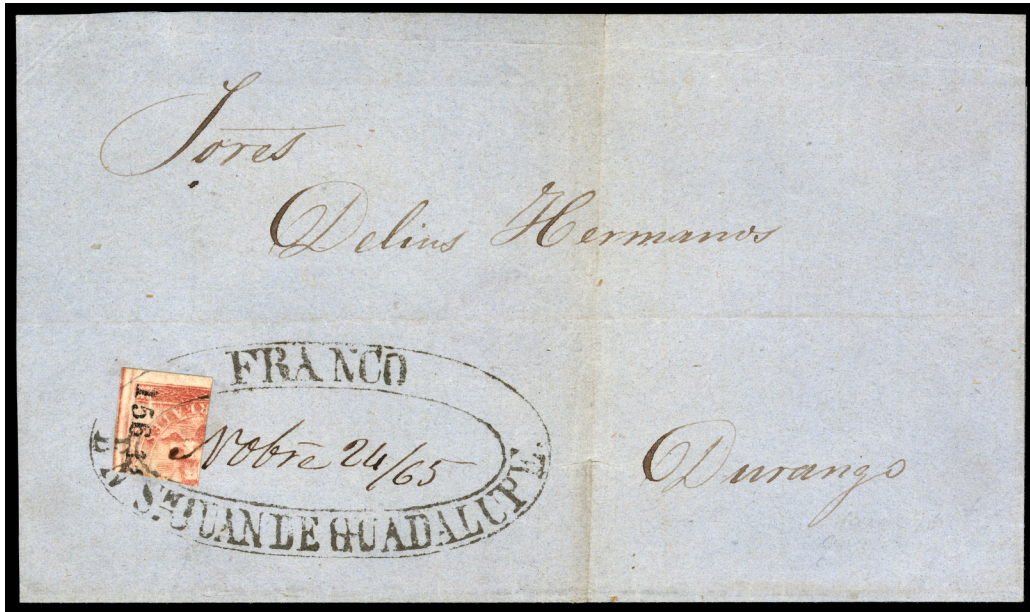 Sores
Delius Hermanos
FRANCO
Nobre 24/65
Sn JUAN DE GUADALUPE
Durango